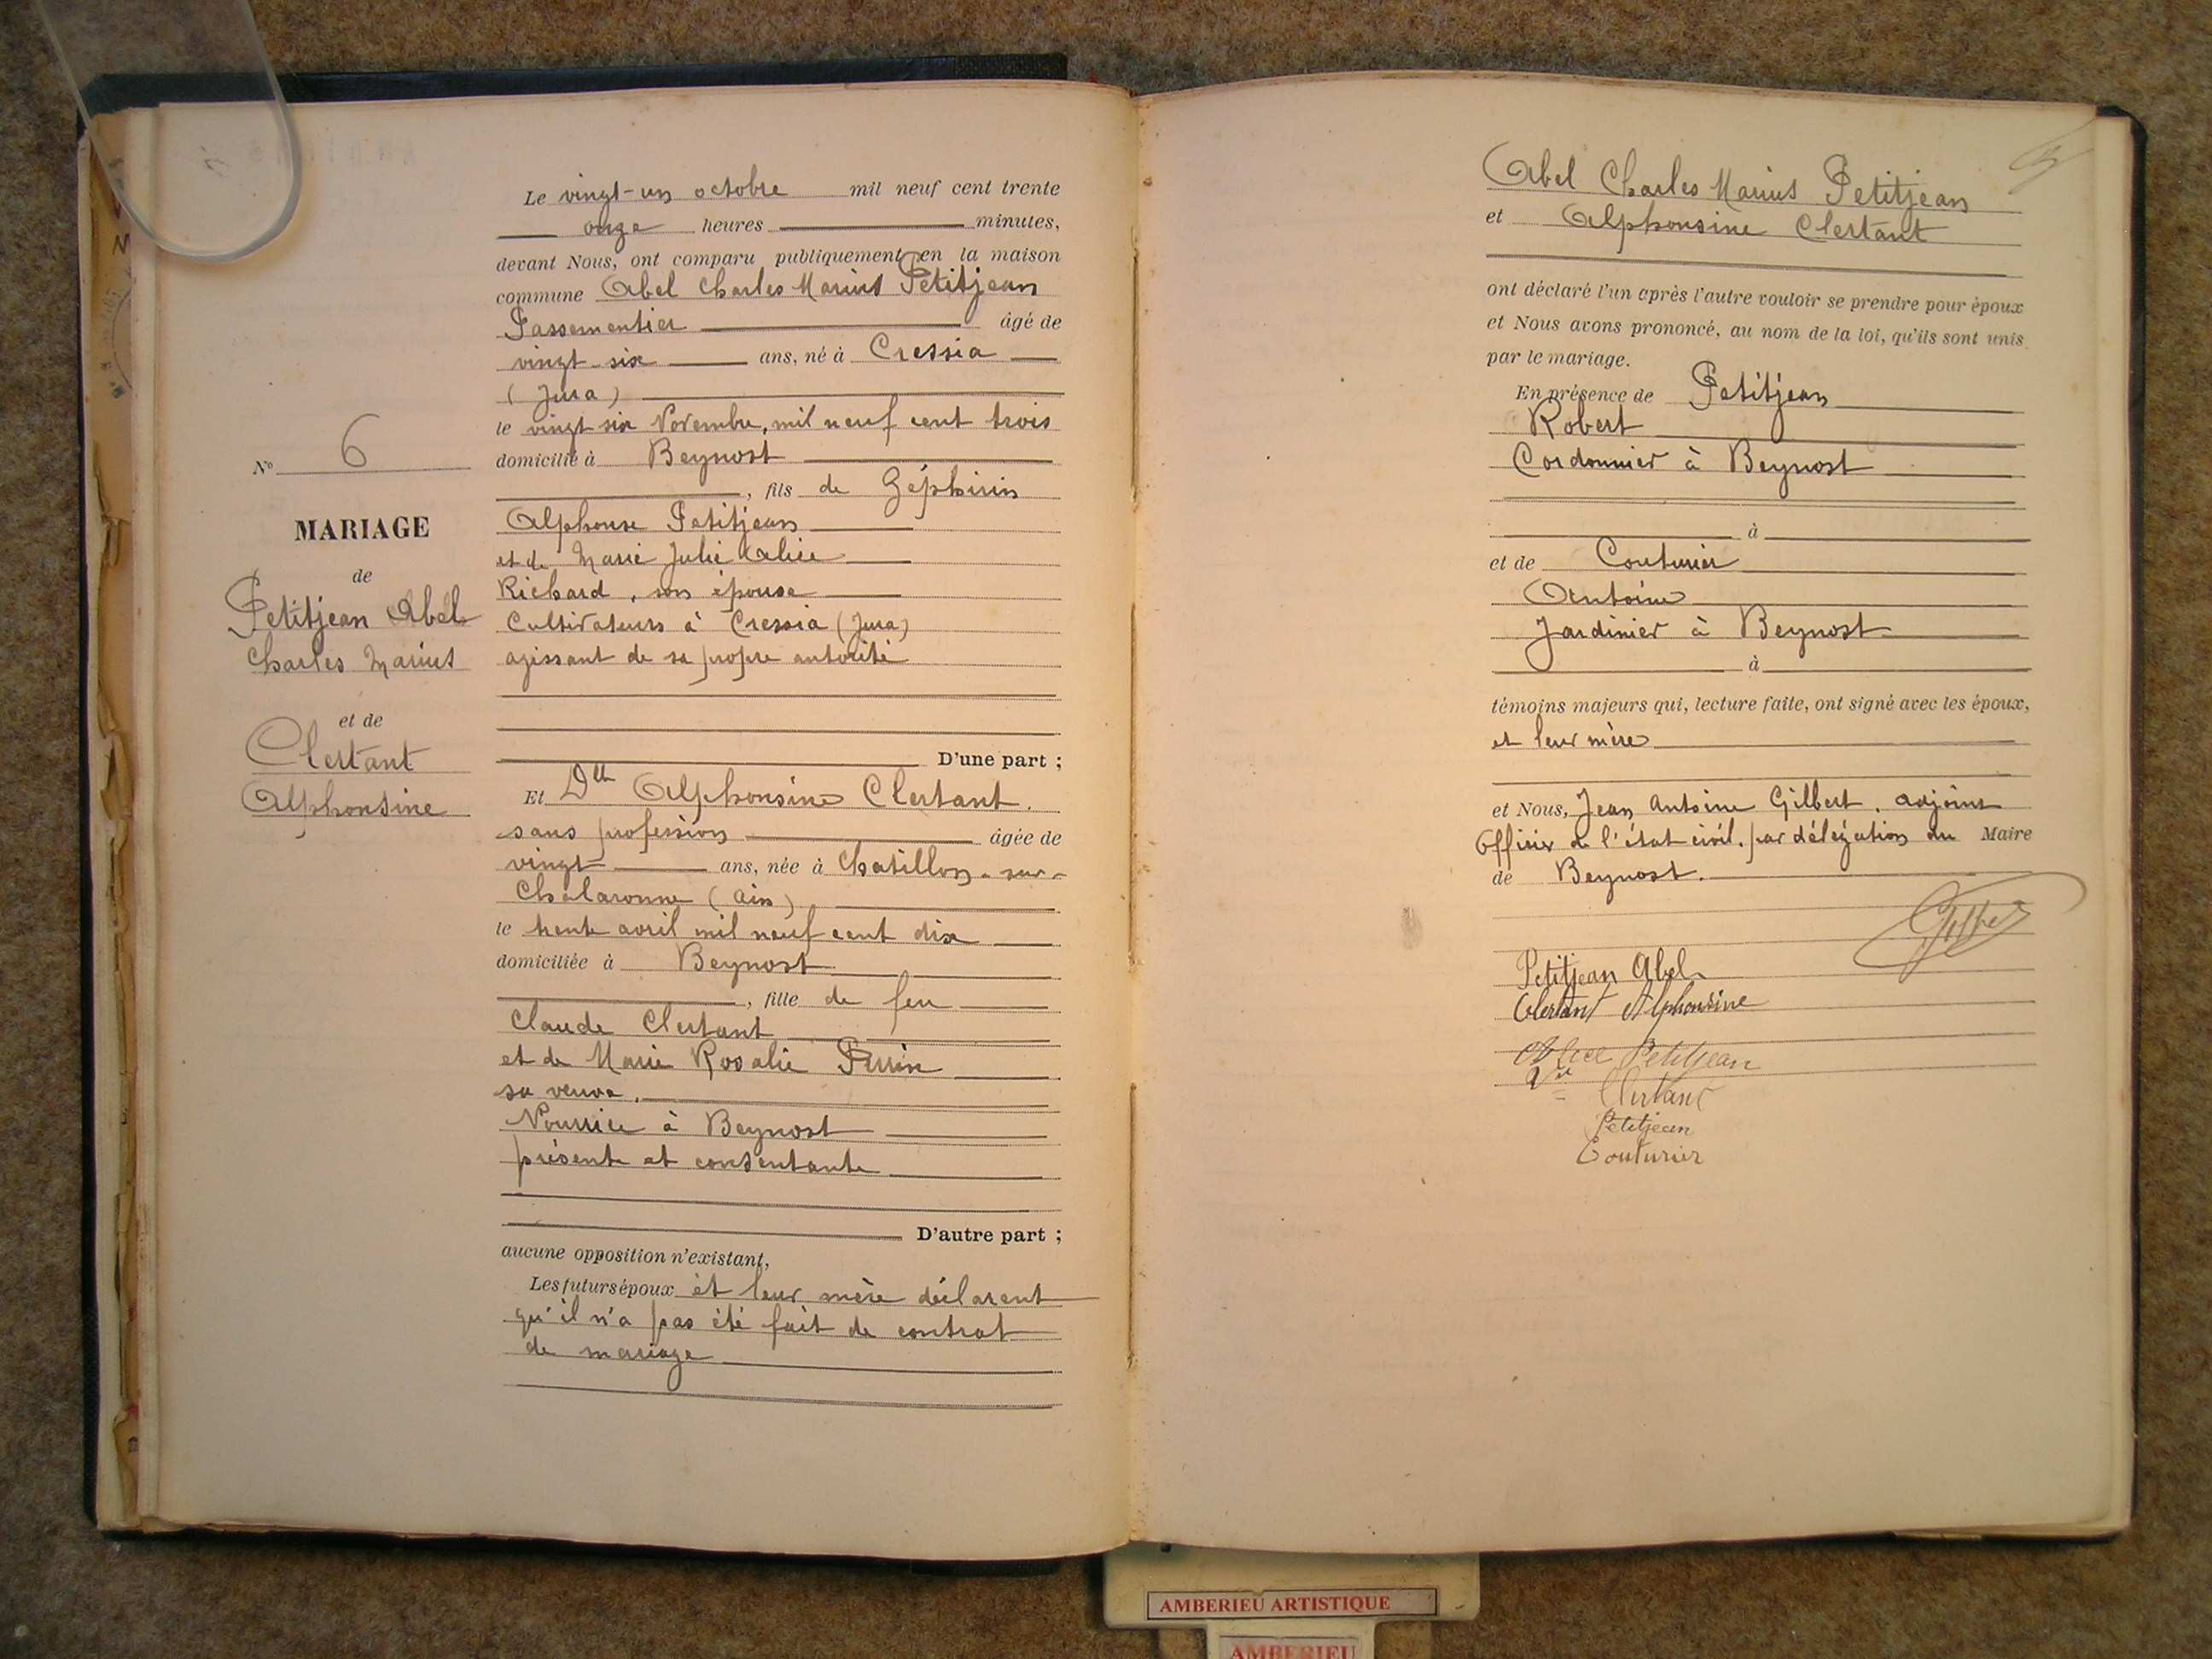 N° 6
MARIAGE
de
Petitjean Abel
Charles Marius
et de
Clertant
Alphonsine
Le vingt-un octobre mil neuf cent trente
onze heures minutes,
devant Nous, ont comparu publiquement en la maison
commune Abel Charles Marius Petitjean
Passementier âgé de
vingt-six ans, né à Cressia
(Jura)
le vingt six Novembre, mil neuf cent trois
domicilié à Beynost
, fils de Zéphirin
Alphonse Petitjean
et de Marie Julie Alice
Richard, son épouse
Cultivateurs à Cressia (Jura)
agissant de sa propre autorité
D'une part ;
Et Dlle Alphonsine Clertant.
sans profession âgée de
vingt ans, née à Chatillon-sur-
Chalaronne (Ain)
le trente avril mil neuf cent dix
domiciliée à Beynost
, fille de feu
Claude Clertant
et de Marie Rosalie Perrin
sa veuve,
Nourrice à Beynost
présente et consentante
D'autre part ;
aucune opposition n'existant,
Les futurs époux et leur mère déclarent
qu'il n'a pas été fait de contrat
de mariage
Abel Charles Marius Petitjean
et Alphonsine Clertant
ont déclaré l'un après l'autre vouloir se prendre pour époux
et Nous avons prononcé, au nom de la loi, qu'ils sont unis
par le mariage.
En présence de Petitjean
Robert
Cordonnier à Beynost
à
et de Couturier
Antoine
Jardinier à Beynost
à
témoins majeurs qui, lecture faite, ont signé avec les époux,
et leur mère
et Nous, Jean Antoine Gilbert, adjoint
Officier de l'état civil, par délégation du Maire
de Beynost.
Gilbert
Petitjean Abel
Clertant Alphonsine
Alice Petitjean
Vve Clertant
Petitjean
Couturier
AMBERIEU ARTISTIQUE
AMBERIEU